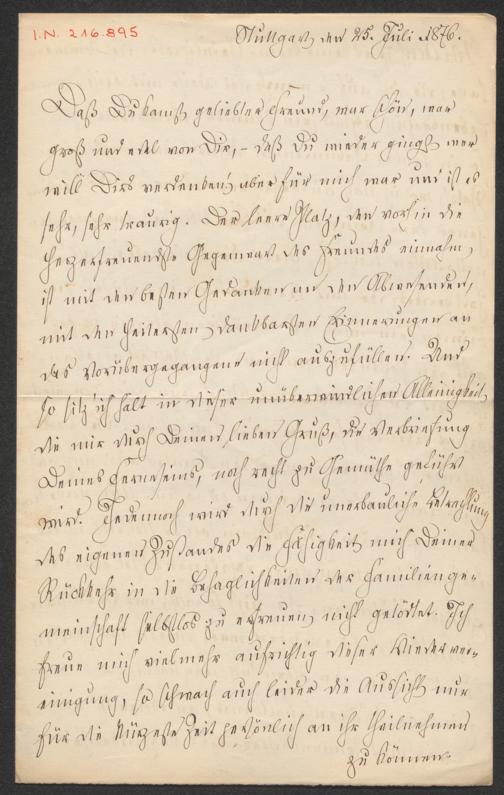 I.N. 216.895
Stuttgart den 25. Juli 1876.
Daß Du kamst geliebter Freund, war schön, war
groß und edel von Dir, – daß Du wieder gingst wer
will Dirs verdenken, aber für mich war und ist es
sehr, sehr traurig. Der leere Platz, den vorhin die
herzerfreuendste Gegenwart des Freundes einnahm,
ist mit den besten Gedanken an den Abwesenden,
mit den heitersten, dankbarsten Erinnerungen an
das Vorübergegangene nicht auszufüllen. Und
so sitz' ich halt in dieser unüberwindlichen Alleinigkeit,
die mir durch Deinen lieben Gruß, die Verbriefung
Deines Ferneseins, noch recht zu Gemüthe geführt
wird. Jedennoch wird durch die unerbauliche Betrachtung
des eigenen Zustandes die Fähigkeit mich Deiner
Rückkehr in die Behaglichkeiten der Familienge-
meinschaft selbstlos zu erfreuen, nicht getödtet. Ich
freue mich vielmehr aufrichtig dieser Wiederver-
einigung, so schwach auch leider die Aussicht nur
für die kürzeste Zeit persönlich an ihr theilnehmen
zu können.